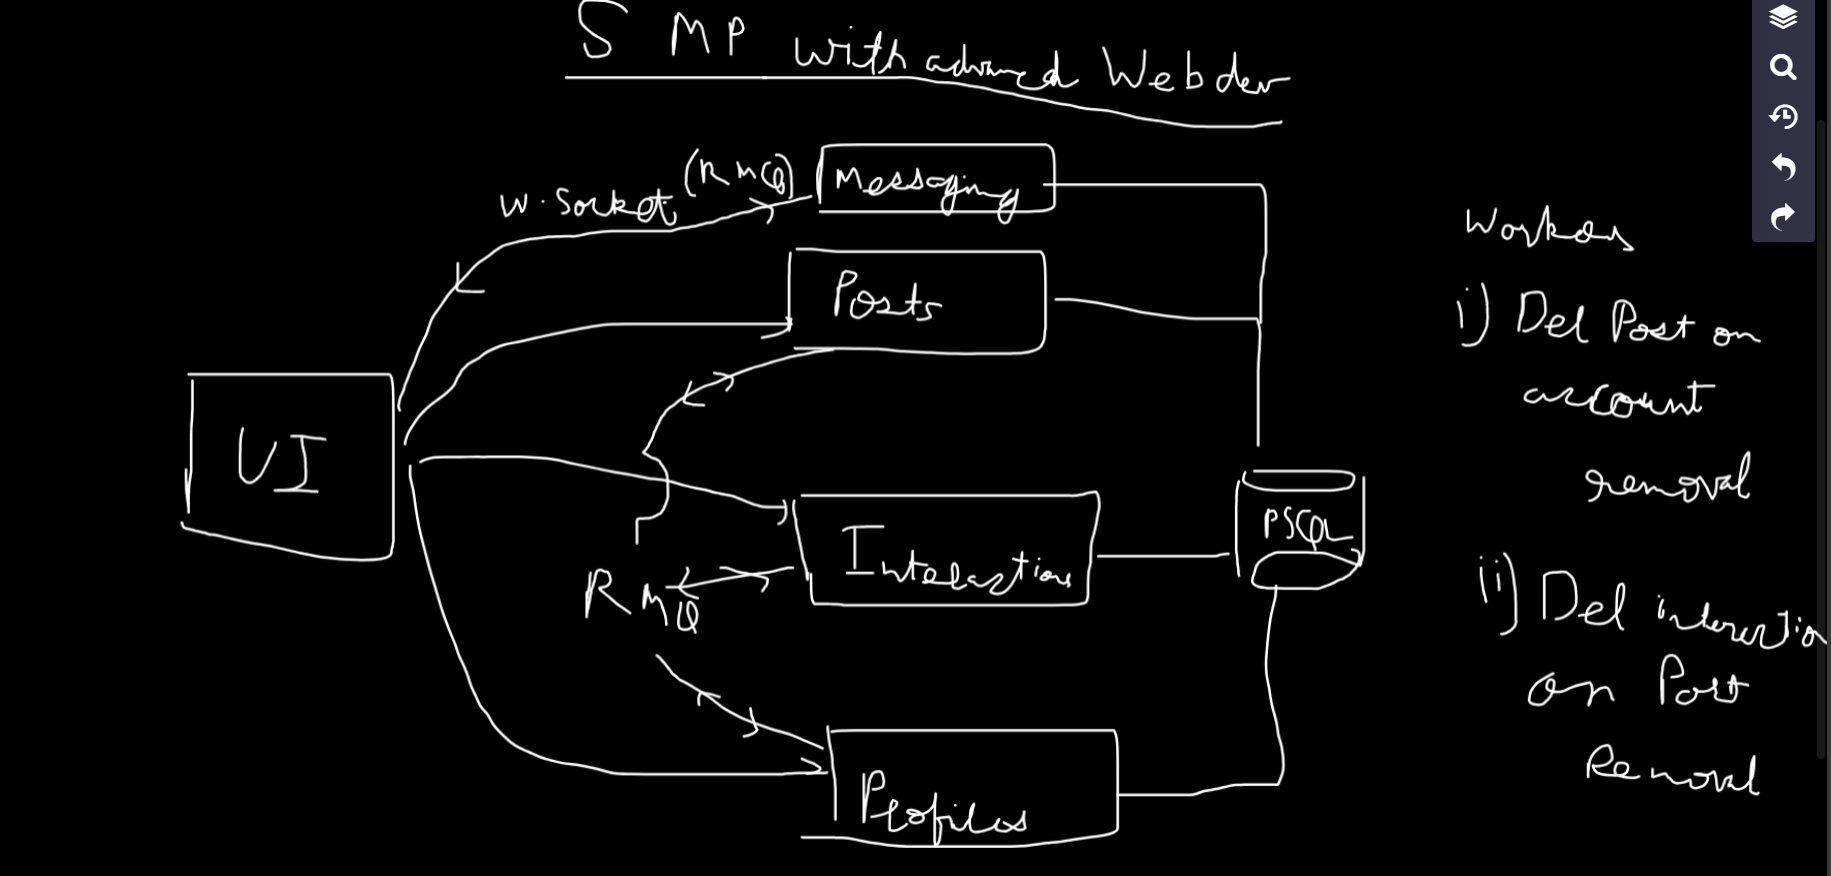 S MP with advanced Webdev
W. Socket (RMQ)
Messaging
Posts
UI
Interactions
RMQ
Profiles
PSQL
Workers
i) Del Post on
account
removal
ii) Del interaction
on Post
Removal